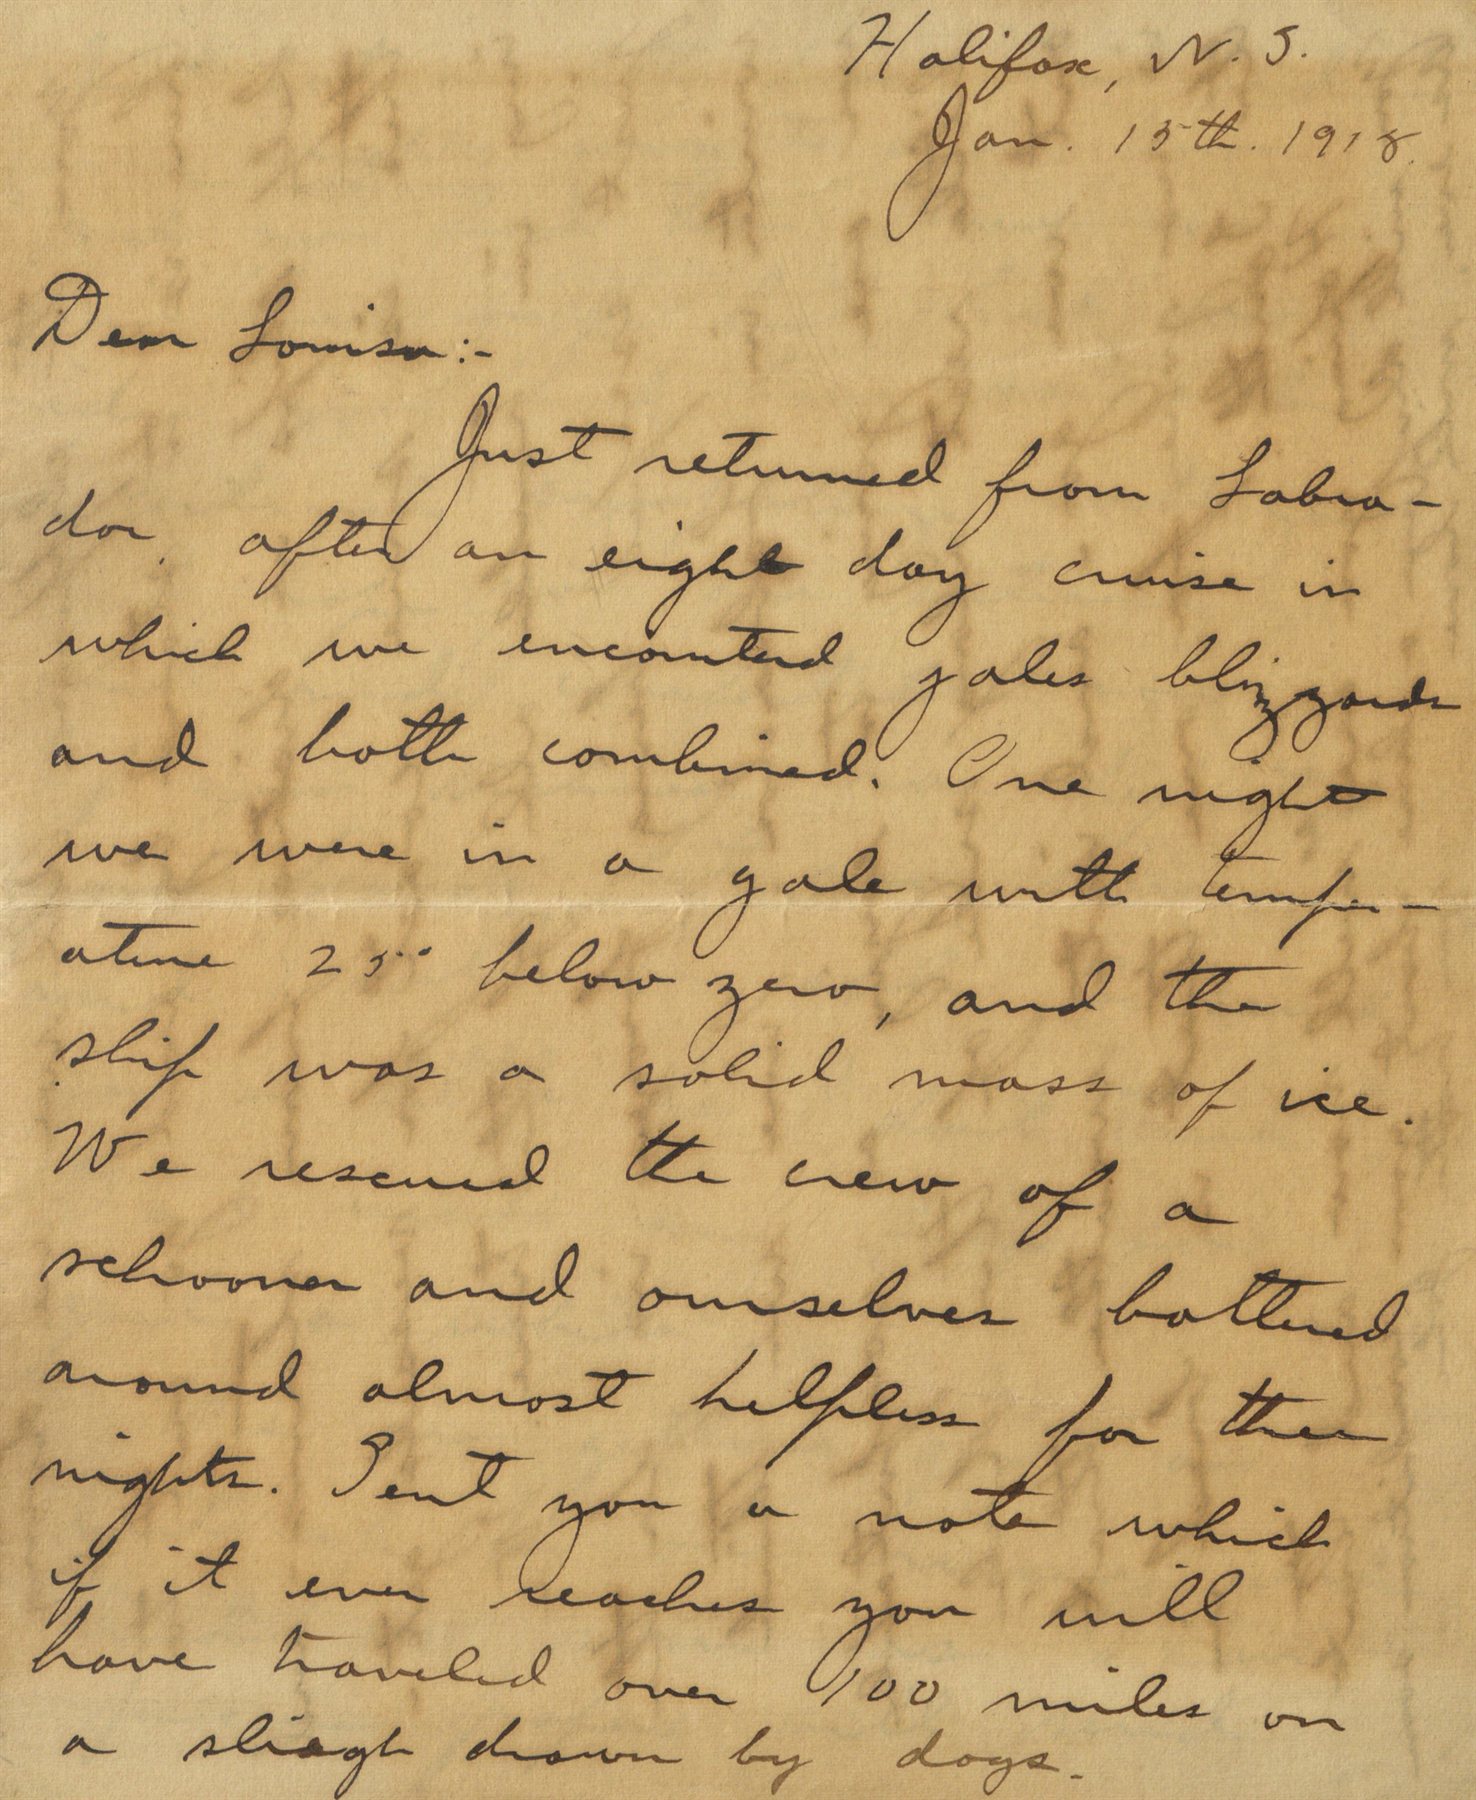 Halifax, N. S.
Jan. 15th. 1918.
Dear Louisa:-
Just returned from Labra-
dor, after an eight day cruise in
which we encounterd gales blizzards
and both combined. One night
we were in a gale with temper-
ature 25° below zero, and the
ship was a solid mass of ice.
We rescued the crew of a
schooner and ourselves battered
around almost helpless for three
nights. Sent you a note which
if it ever reaches you will
have traveled over 100 miles on
a sliegh drawn by dogs.